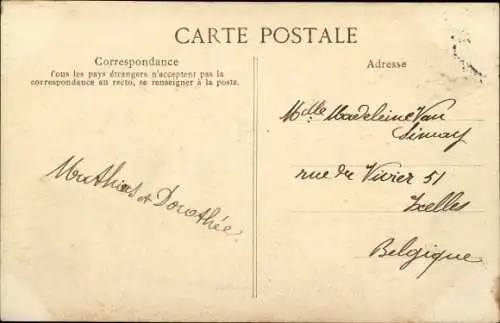 CARTE POSTALE
Correspondance
Tous les pays étrangers n'acceptent pas la
correspondance au recto, se renseigner à la poste.
Adresse
Mathias et Dorothée.
Mdlle Madeleine Van
Simay
rue du Vivier 51
Ixelles
Belgique